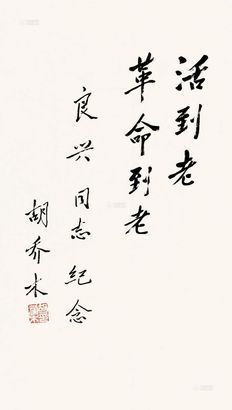 活到老
革命到老
良兴同志纪念
胡乔木